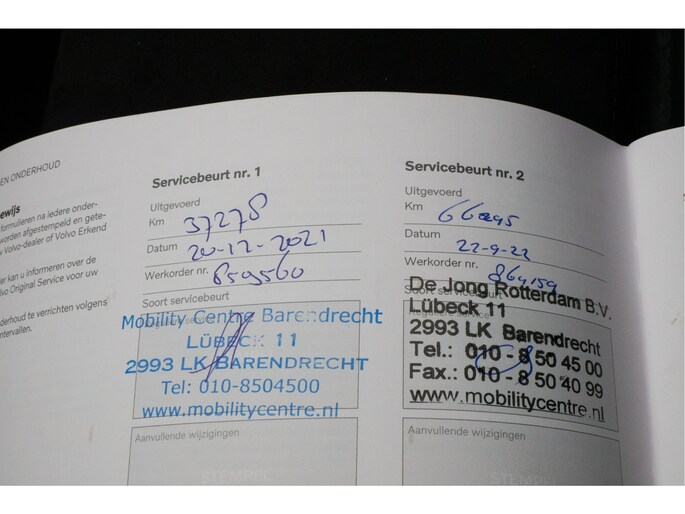 EN ONDERHOUD
ewijs
formulieren na iedere onder-
worden afgestempeld en gete-
Volvo-dealer of Volvo Erkend
er kan u informeren over de
Volvo Original Service voor uw
derhoud te verrichten volgens
ntervallen.
Servicebeurt nr. 1
Uitgevoerd
Km 37278
Datum 20-12-2021
Werkorder nr. 859560
Soort servicebeurt
Mobility Centre Barendrecht
LÜBECK 11
2993 LK BARENDRECHT
Tel: 010-8504500
www.mobilitycentre.nl
Aanvullende wijzigingen
STEMPEL
Servicebeurt nr. 2
Uitgevoerd
Km
Datum 22-9-22
Werkorder nr. 864159
Soort servicebeurt
De Jong Rotterdam B.V.
Lübeck 11
2993 LK Barendrecht
Tel.: 010 - 8 50 45 00
Fax.: 010 - 8 50 40 99
www.mobilitycentre.nl
Aanvullende wijzigingen
STEMPEL